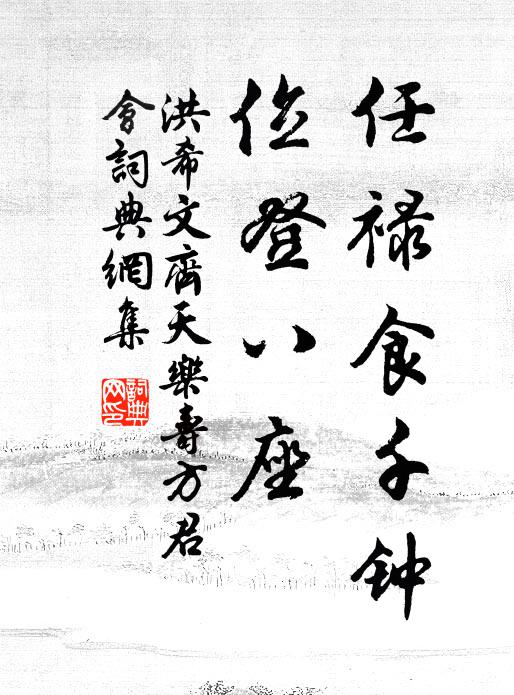 任禄食千钟
位登八座
洪希文齊天樂壽方君
會詞典網集
詞典网印